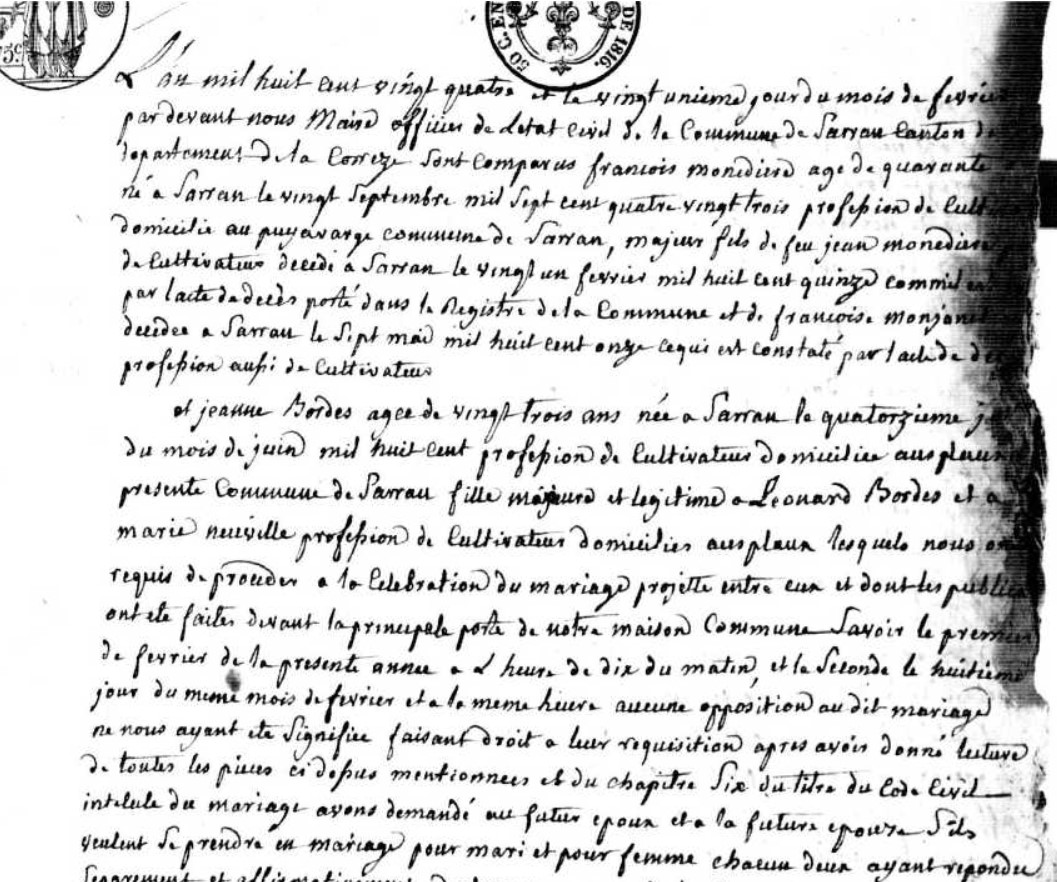 75c.
50 C. EN
DE 1816.
L'an mil huit cent vingt quatre et le vingt unieme jour du mois de fevrier
par devant nous Maire officier de Letat Civil de la Commune de Sarran Canton
departement de la Correze sont Comparus francois monediere age de quarante
né a Sarran le vingt Septembre mil Sept cent quatre vingt trois profession de
domicilie au puyavarge commune de Sarran, majeur fils de feu jean monediere
de Cultivateur decedé a Sarran le vingt un fevrier mil huit cent quinze comme il
par lacte de decès porté dans le Registre de la Commune et de francoise
decedee a Sarran le Sept mai mil huit cent onze cequi est constaté par l'acte de
profession aussi de Cultivateur
et jeanne Bordes agee de vingt trois ans née a Sarran le quatorzieme
du mois de juin mil huit cent profession de Cultivateur domiciliee
presente Commune de Sarran fille majeure et legitime a Leonard Bordes et a
marie neuville profession de Cultivateur domicilies lesquels nous
requis de proceder a la Celebration du mariage projetté entre eux et dont les
ont été faites devant la principale porte de notre maison Commune Savoir le premier
de fevrier de la presente annee a L heure de dix du matin, et la Seconde le huitieme
jour du meme mois de fevrier et a la meme heure aucune opposition au dit mariage
ne nous ayant ete Signifiee faisant droit a leur requisition apres avoir donné lecture
de toutes les pieces ci dessus mentionnees et du chapitre Six du titre du Code Civil
intitule du mariage avons demandé au futur epoux et a la future epouze Sils
veulent Se prendre en mariage pour mari et pour femme chacun deux ayant repondu
Separement et affirmativement